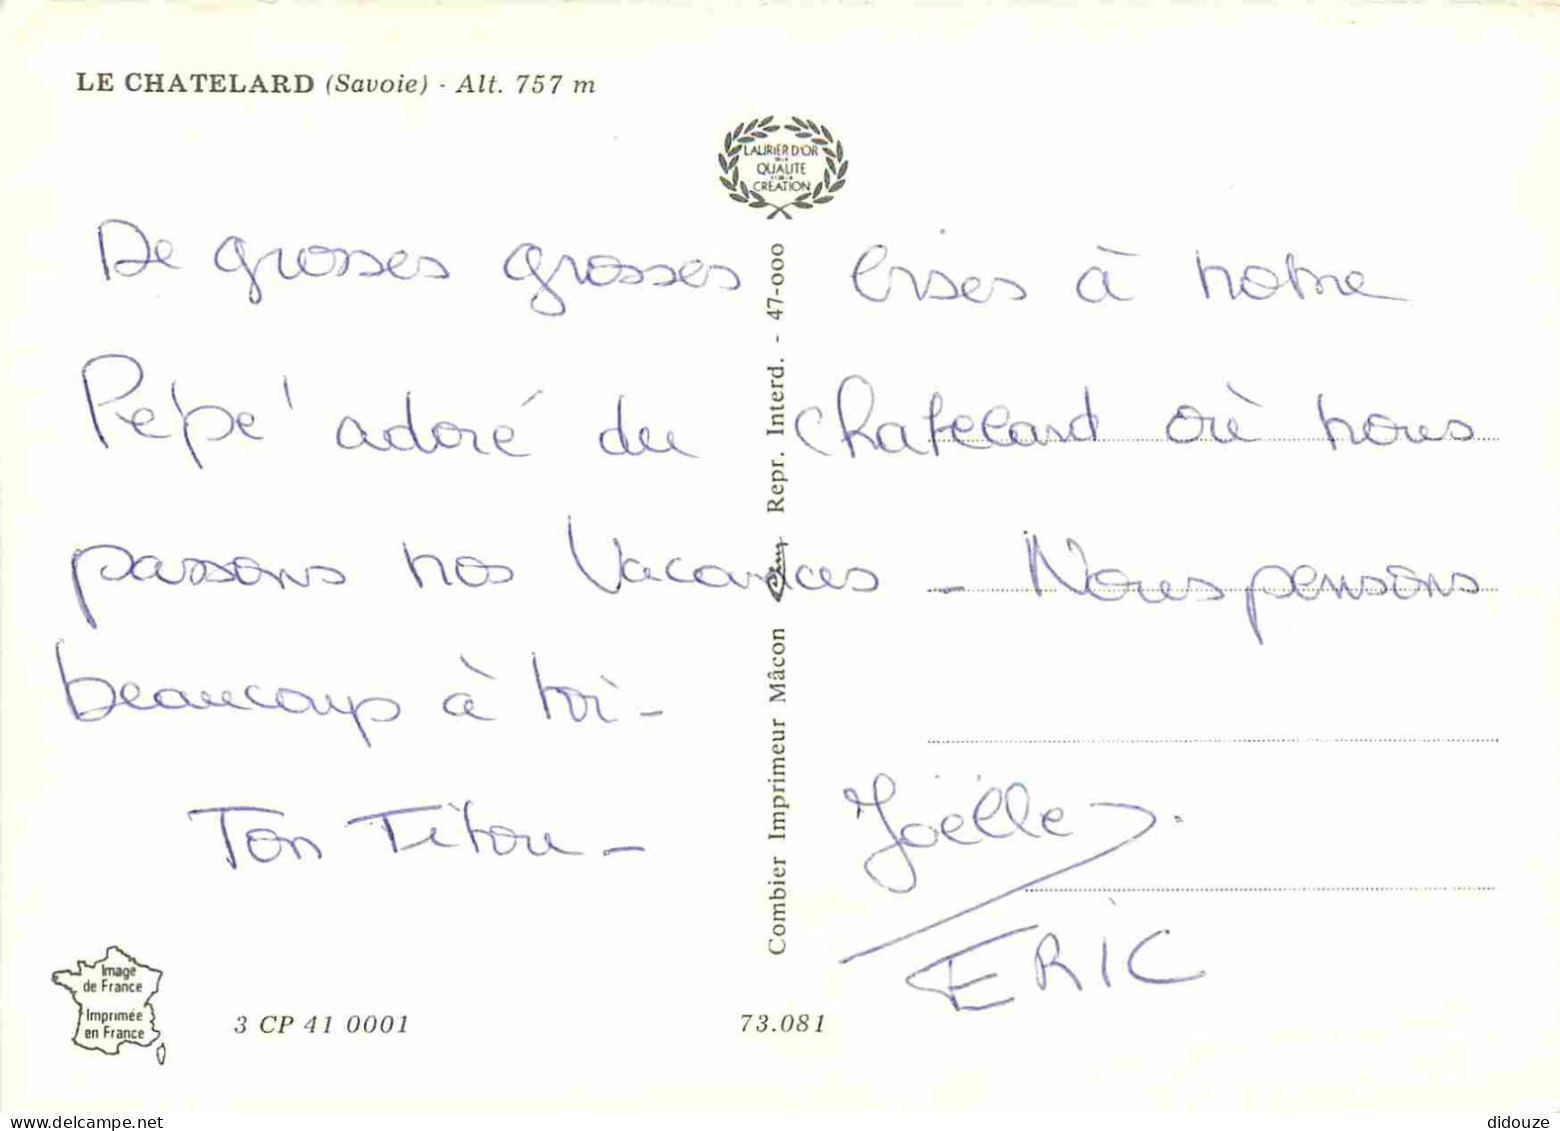 LE CHATELARD (Savoie) - Alt. 757 m
LAURIER D'OR
DE LA
QUALITE
ET DE LA
CRÉATION
De grosses grosses bises à notre
Pépé adoré du chatelard où nous
passons nos Vacances - Nous pensons
beaucoup à toi -
Ton Titou - Joëlle
ERIC
Combier Imprimeur Mâcon Repr. Interd. - 47-000
Image
de France
Imprimée
en France
3 CP 41 0001
73.081
didouze